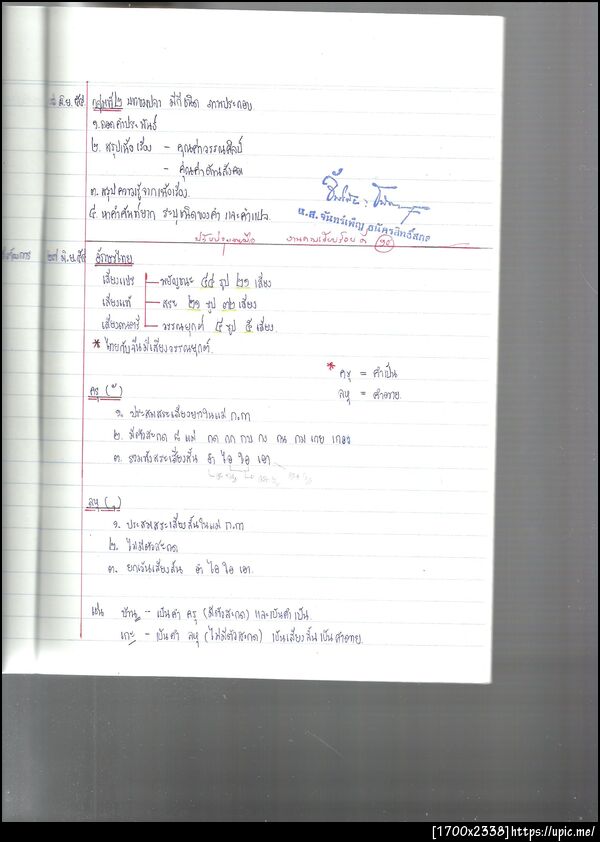 มิ.ย. ๕๕ กลุ่มที่ ๒ มีกี่ชนิด ภาพประกอบ
๑. ถอดคำประพันธ์
๒. สรุปเนื้อเรื่อง - คุณค่าวรรณศิลป์
- คุณค่าด้านสังคม
๓. สรุปความรู้จากเนื้อเรื่อง
๔. หาคำศัพท์ยาก ระบุชนิดของคำ และคำแปล.
น.ส. จันทร์เพ็ญ
๒๗ มิ.ย. ๕๕ อักษรไทย
เสียงแปร - พยัญชนะ ๔๔ รูป ๒๑ เสียง
เสียงแท้ - สระ ๒๑ รูป ๓๒ เสียง
เสียงดนตรี - วรรณยุกต์ ๔ รูป ๕ เสียง.
* ไทยกับจีนมีเสียงวรรณยุกต์.
* ครุ = คำเป็น
ลหุ = คำตาย.
ครุ ( ั )
๑. ประสมสระเสียงยาวในแม่ ก.กา
๒. มีตัวสะกด ๘ แม่ กด กก กบ กง กน กม เกย เกอว
๓. รวมทั้งสระเสียงสั้น อำ ไอ ใอ เอา
ลหุ ( ุ )
๑. ประสมสระเสียงสั้นในแม่ ก.กา
๒. ไม่มีตัวสะกด
๓. ยกเว้นเสียงสั้น อำ ไอ ใอ เอา.
เช่น บ้าน - เป็นคำ ครุ (มีตัวสะกด) และเป็นคำเป็น.
เกะ - เป็นคำ ลหุ (ไม่มีตัวสะกด) เป็นเสียงสั้นเป็นคำตาย.
[1700x2338]https://upic.me/